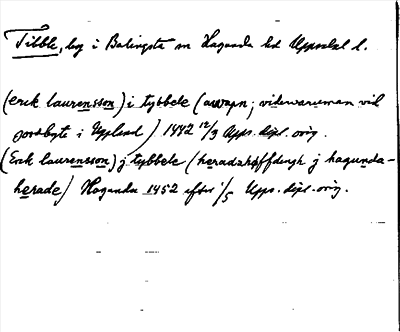 Tibble, by i Balingsta sn Hagunda hd Uppsala l.
(erik laurensson) i tybbele (
jordbyte i Uppland) 1442 12/3 Upps. dipl. orig.
(Erik laurensson) j tybbele (heradzhøffdingh j hagunda-
herade) Hagunda 1452 efter 1/5 Upps. dipl. orig.